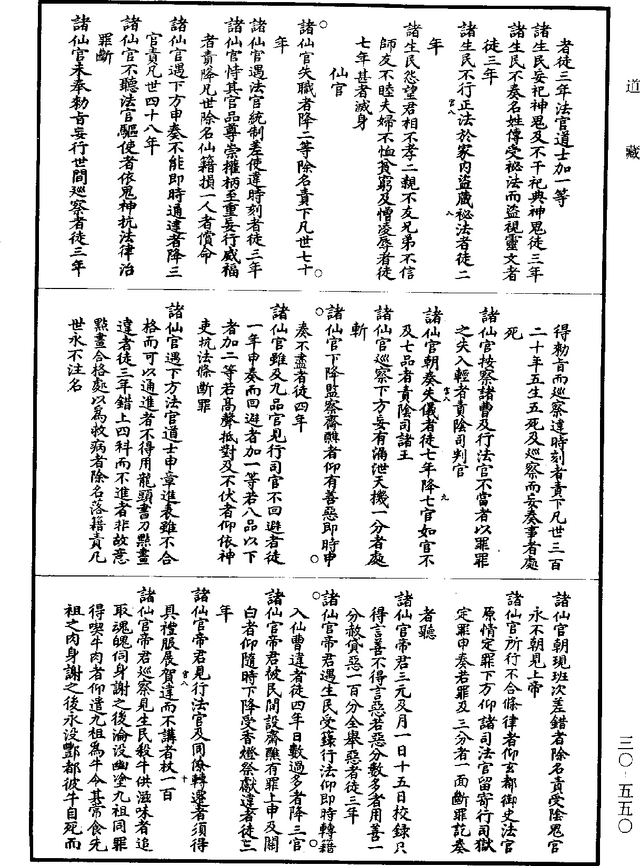 道藏
者徒三年法官道士加一等
諸生民妄祀神鬼及不干祀典神鬼徒三年
諸生民不奏名姓傳受祕法而盜視靈文者
徒三年
諸生民不行正法於家內盜藏祕法者徒二
年
諸生民怨望君相不孝二親不友兄弟不信
師友不睦夫婦不恤貧窮及憎凌辱者徒
七年甚者滅身
仙官
諸仙官失職者降二等除名責下凡世七十
年
諸仙官遇法官統制差使違時刻者徒三年
諸仙官恃其官品尊崇權柄至重妄行威福
者責降凡世除名仙籍損一人者償命
諸仙官遇下方申奏不能即時通達者降三
官責凡世四十八年
諸仙官不聽法官驅使者依鬼神抗法律治
罪斷
諸仙官未奉勑旨妄行世間巡察者徒三年
得勑旨而巡察違時刻者責下凡世三百
二十年五生五死及巡察而妄奏事者處
死
諸仙官按察諸曹及行法官不當者以罪罪
之失入輕者責陰司判官
諸仙官朝奏失儀者徒七年降七官如官不
及七品者責陰司諸王
諸仙官巡察下方妄有漏泄天機一分者處
斬
諸仙官下降監察齋醮者仰有善惡即時申
奏不盡者徒四年
諸仙官雖及九品官見行司官不回避者徒
一年申奏而回避者加一等若八品以下
者加二等若高聲抵對及不伏者仰依神
吏抗法條斷罪
諸仙官遇下方法官道士申章進表雖不合
格而可以通進者不得用龍頭書刀點畫
違者徒三年錯上四科而不進者非故意
點畫合格處以為救病者除名落籍責凡
世永不注名
諸仙官朝現班次差錯者除名責受陰鬼官
永不朝見上帝
諸仙官所行不合條律者仰玄都御史法官
原情定罪下方仰諸司法官留寄行司獄
定罪申奏若罪及三分者一面斷罪訖奏
者聽
諸仙官帝君三元及月一日十五日校錄只
得言善不得言惡若惡分數多者用善一
分赦貸惡一百分全舉惡者徒三年
諸仙官帝君遇生民受籙行法仰即時轉籍
入仙曹違者徒四年日數過多者降三官
諸仙官帝君被民間設齋醮有罪上申及關
白者仰隨時下降受香燈祭獻違者徒三
年
諸仙官帝君見行法官及同僚轉遷者須得
具禮服展賀違而不講者杖一百
諸仙官帝君巡察見生民殺牛供滋味者追
取魂魄伺身謝之後淪沒幽塗九祖同罪
得喫牛肉者仰遣九祖為牛令其常食先
祖之肉身謝之後永沒酆都被牛自死而
三〇·五五〇